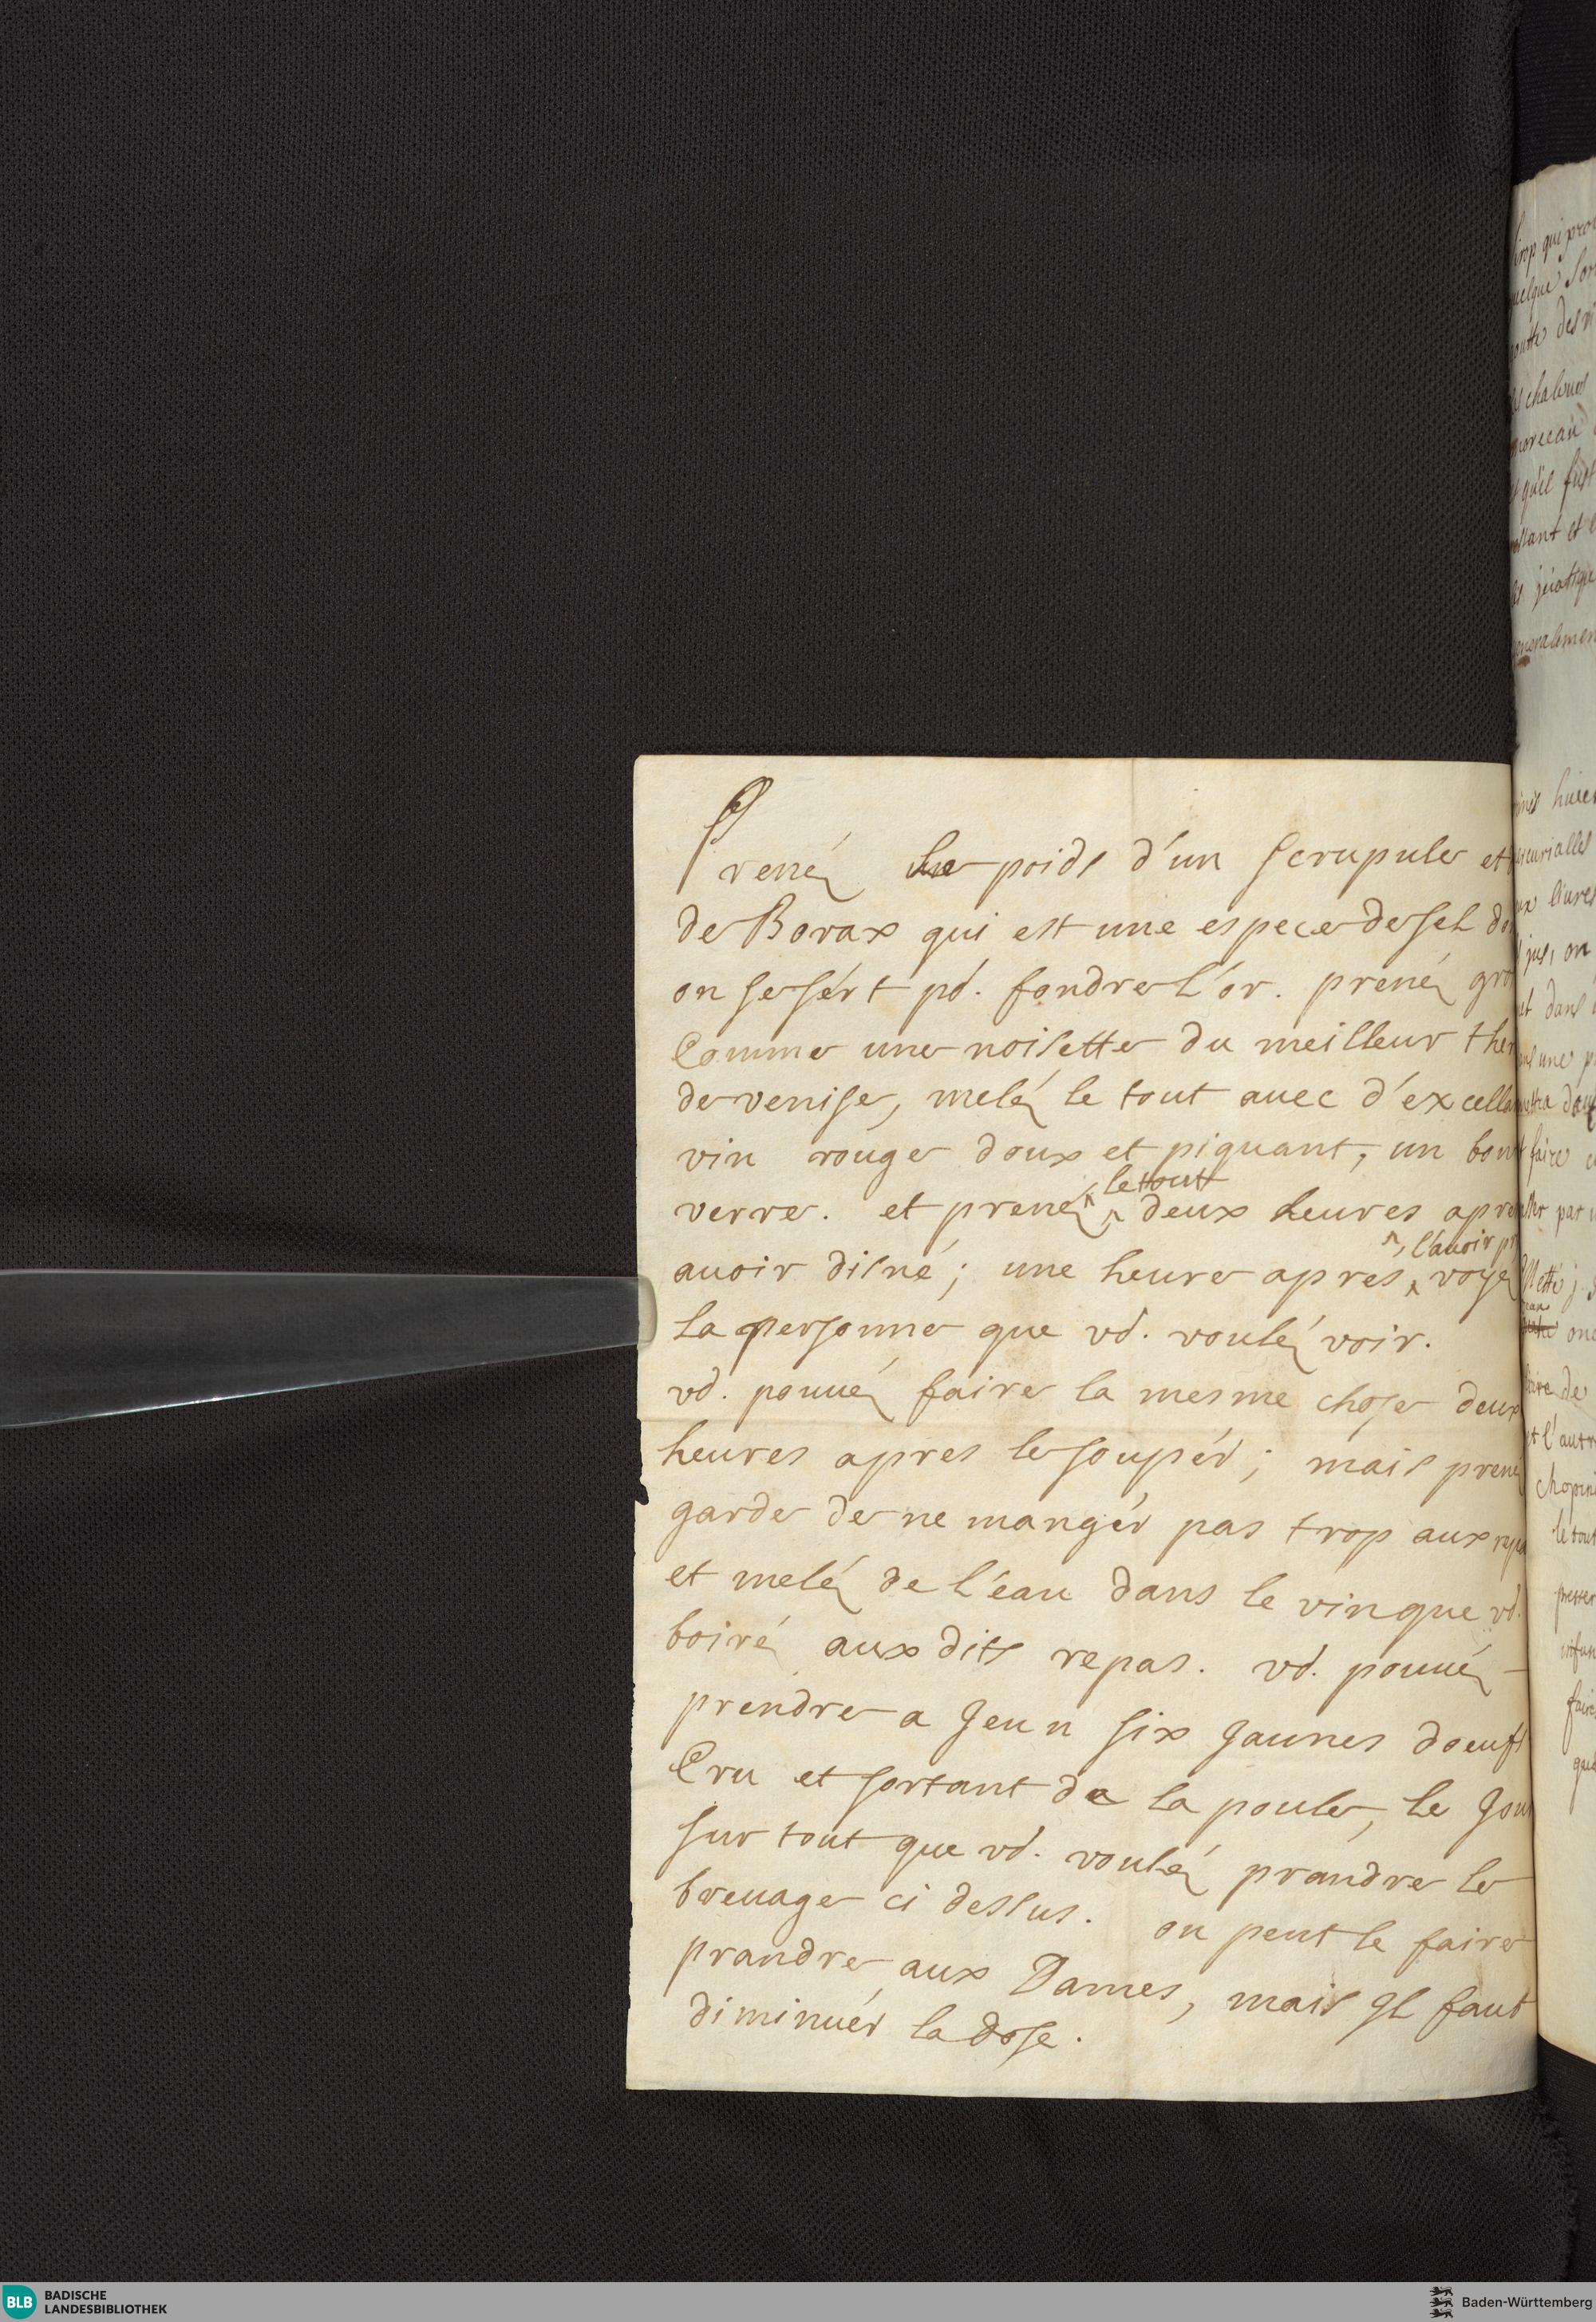 Prené le poids d'un scrupule et
de Borax qui est une espece de sel do
on se sért pd. fondre l'or. prené gro
Comme une noisette du meilleur ther
de venise, melé le tout auec d'excella
vin rouge doux et piquant, un bon
le tout
verre. et prené deux heures apre
l'auoir pr
auoir disné; une heure apres, voyé
La personne que vd. voulé voir.
vd. pouué faire la mesme chose deux
heures apres le soupér; mais prené
garde de ne mangér pas trop aux repa
et melé de l'éau dans le vin que vd.
boiré aux dits repas. vd. pouué -
prendre a Jeun six Jaunes doeufs
Cru et sortant de la poule, le Jou
sur tout que vd. voulé prandre le
breuage ci dessus. on peut le faire
prandre aux Dames, mais Jl faut
diminuér la dose.
irop qui pro
uelque sor
outte des
chaleurs
morceau
qu'il fust
ssant et
jusque
neralemen
huict
mercurialles
liures
jus, on
et dans
une p
faire
par
Mette
one
de
et l'autr
chopin
le tout
presser
infus
faire
BLB BADISCHE
LANDESBIBLIOTHEK
Baden-Württemberg